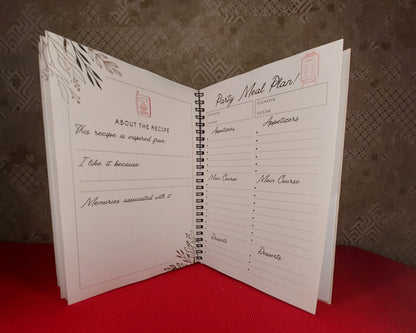 ABOUT THE RECIPE
This recipe is inspired from
I like it because
Memories associated with it
Party Meal Plan!
OCCASION
Appetizers
Appetizers
Main Course
Main Course
Desserts
Desserts